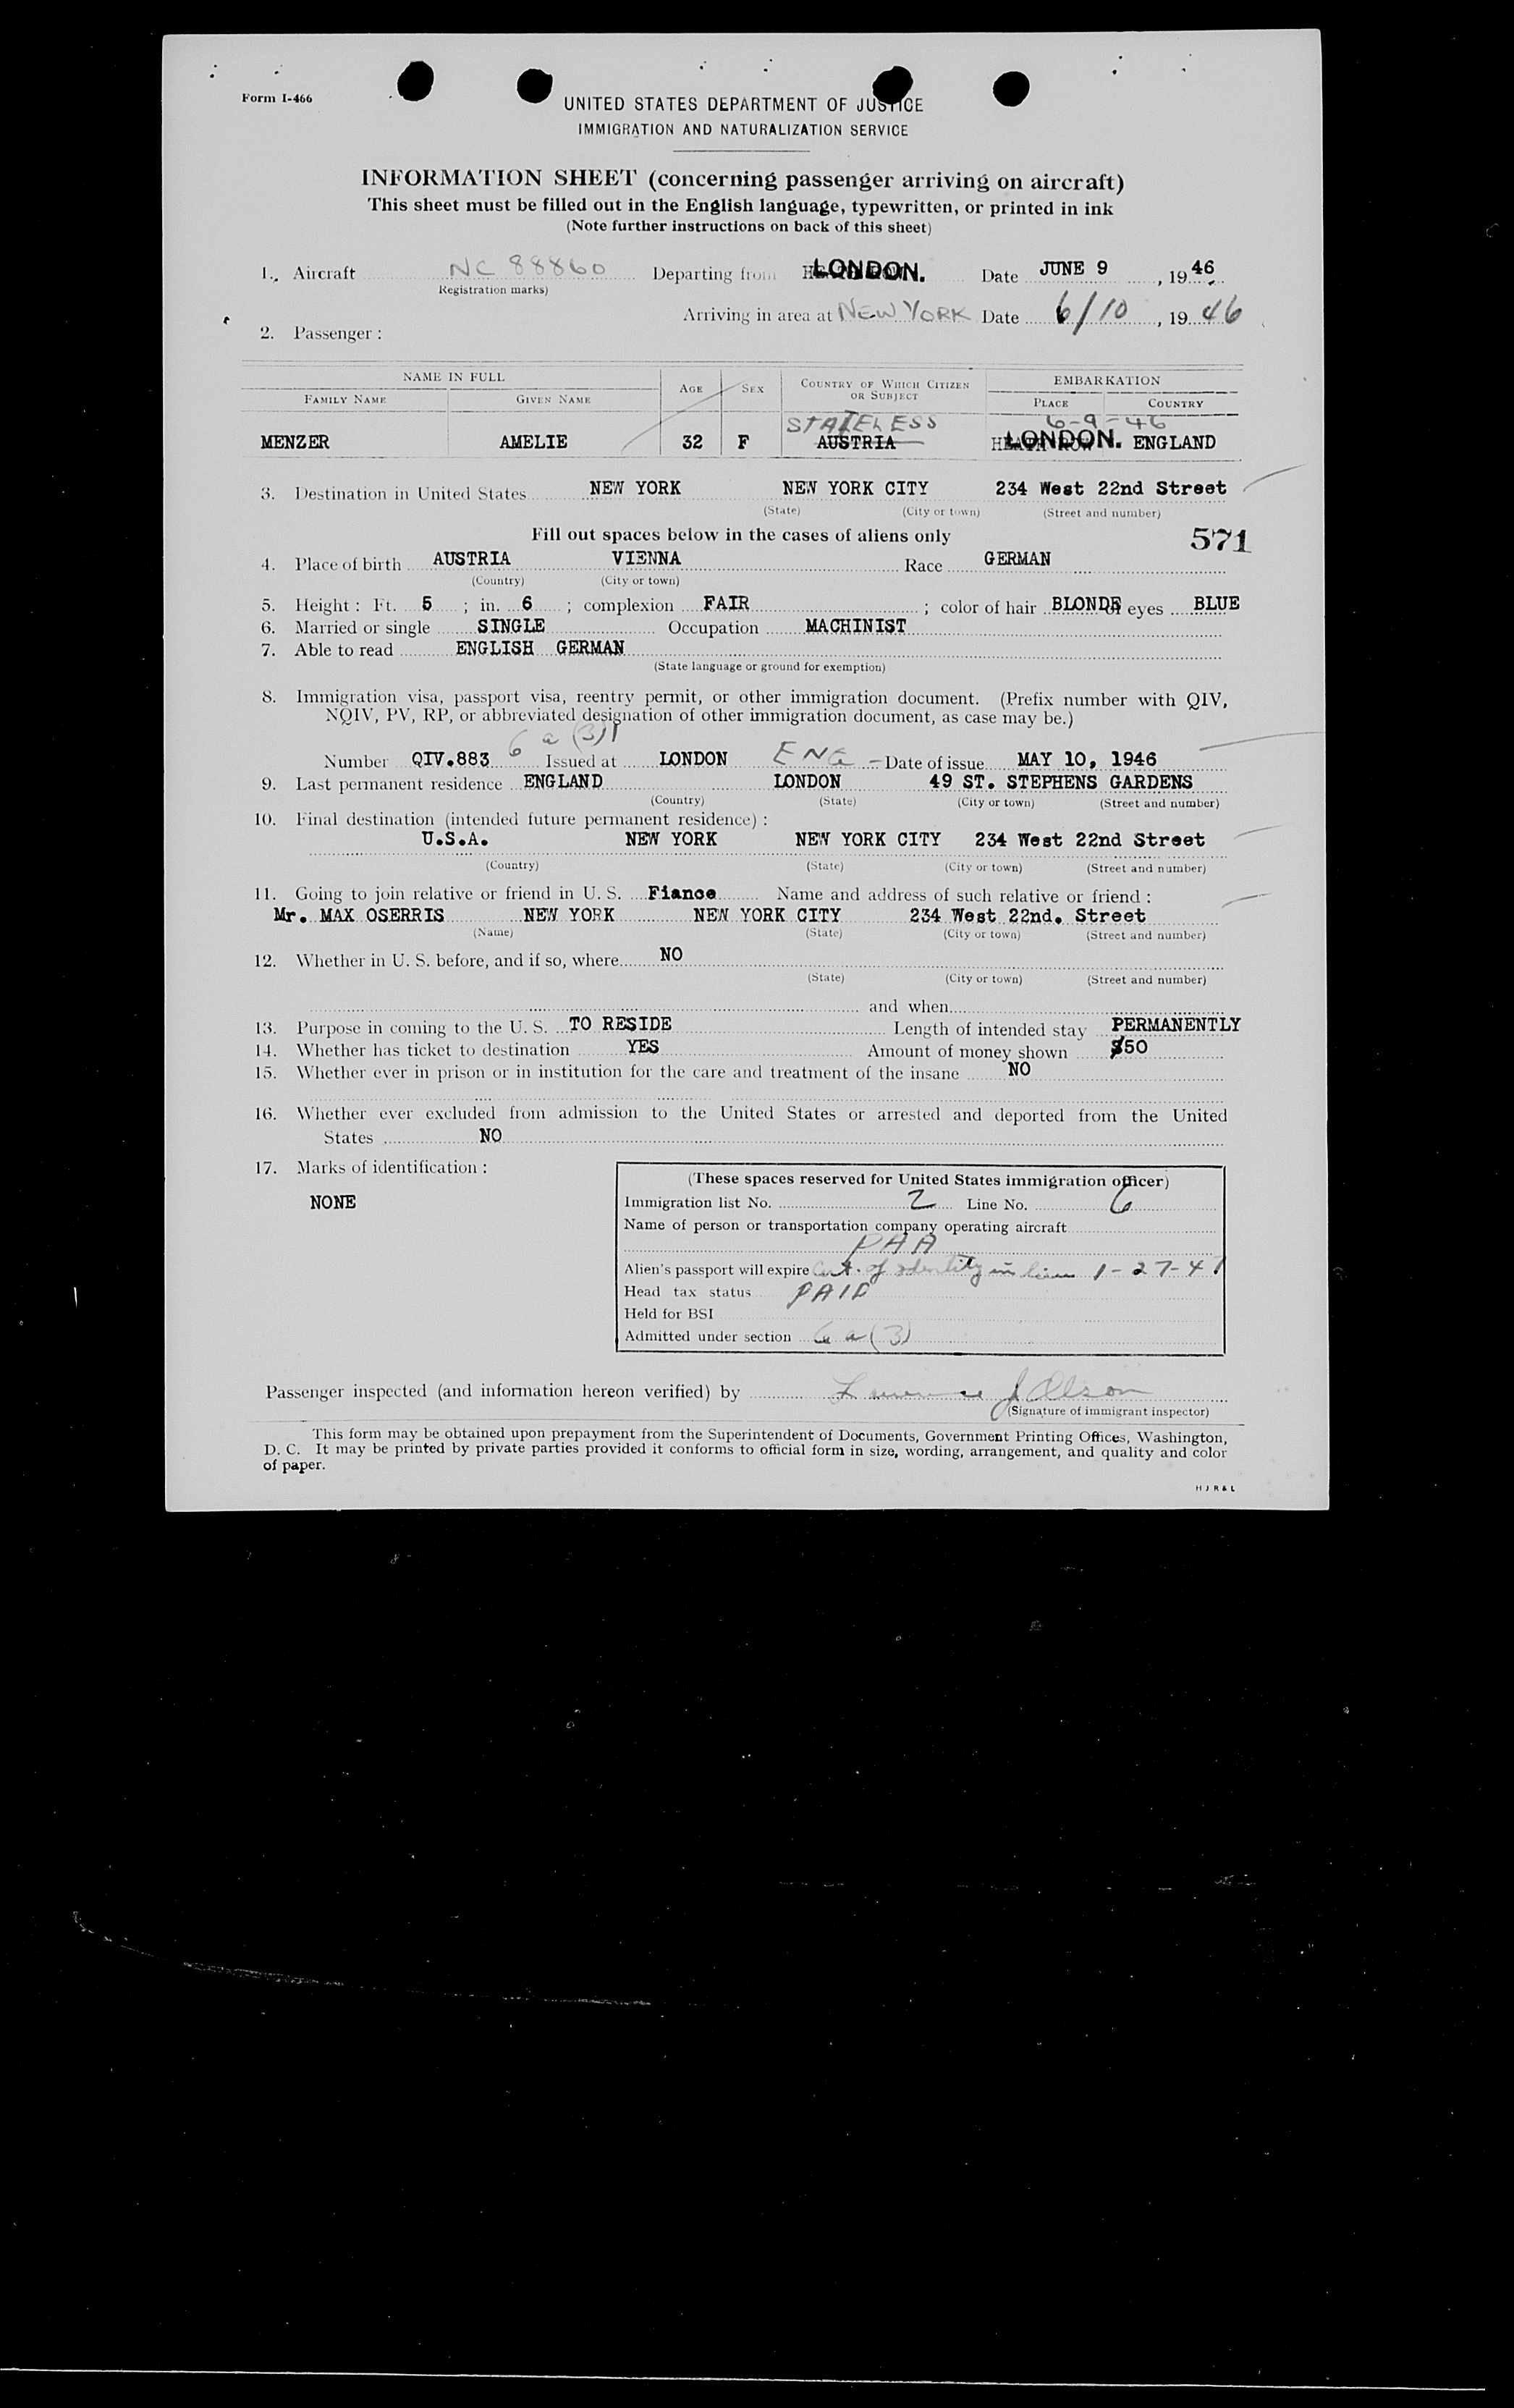 Form I-466
UNITED STATES DEPARTMENT OF JUSTICE
IMMIGRATION AND NATURALIZATION SERVICE
INFORMATION SHEET (concerning passenger arriving on aircraft)
This sheet must be filled out in the English language, typewritten, or printed in ink
(Note further instructions on back of this sheet)
1. Aircraft NC 88860 Departing from LONDON. Date JUNE 9, 1946
(Registration marks)
Arriving in area at NEW YORK Date 6/10, 1946
2. Passenger:
NAME IN FULL AGE SEX COUNTRY OF WHICH CITIZEN OR SUBJECT EMBARKATION
FAMILY NAME GIVEN NAME PLACE COUNTRY
STATELESS 6-9-46
MENZER AMELIE 32 F AUSTRIA LONDON. ENGLAND
3. Destination in United States NEW YORK NEW YORK CITY 234 West 22nd Street
(State) (City or town) (Street and number)
Fill out spaces below in the cases of aliens only
571
4. Place of birth AUSTRIA VIENNA Race GERMAN
(Country) (City or town)
5. Height: Ft. 5; in. 6; complexion FAIR; color of hair BLONDE eyes BLUE
6. Married or single SINGLE Occupation MACHINIST
7. Able to read ENGLISH GERMAN
(State language or ground for exemption)
8. Immigration visa, passport visa, reentry permit, or other immigration document. (Prefix number with QIV,
NQIV, PV, RP, or abbreviated designation of other immigration document, as case may be.)
6 a (3)
Number QIV.883 Issued at LONDON ENG - Date of issue MAY 10, 1946
9. Last permanent residence ENGLAND LONDON 49 ST. STEPHENS GARDENS
(Country) (State) (City or town) (Street and number)
10. Final destination (intended future permanent residence):
U.S.A. NEW YORK NEW YORK CITY 234 West 22nd Street
(Country) (State) (City or town) (Street and number)
11. Going to join relative or friend in U. S. Fiance Name and address of such relative or friend:
Mr. MAX OSERRIS NEW YORK NEW YORK CITY 234 West 22nd. Street
(Name) (State) (City or town) (Street and number)
12. Whether in U. S. before, and if so, where NO
(State) (City or town) (Street and number)
and when
13. Purpose in coming to the U. S. TO RESIDE Length of intended stay PERMANENTLY
14. Whether has ticket to destination YES Amount of money shown $50
15. Whether ever in prison or in institution for the care and treatment of the insane NO
16. Whether ever excluded from admission to the United States or arrested and deported from the United
States NO
17. Marks of identification:
NONE
(These spaces reserved for United States immigration officer)
Immigration list No. 2 Line No. 6
Name of person or transportation company operating aircraft
PAA
Alien's passport will expire Cert. of identity in lieu 1-27-47
Head tax status PAID
Held for BSI
Admitted under section 6 a (3)
Passenger inspected (and information hereon verified) by Lawrence J Olson
(Signature of immigrant inspector)
This form may be obtained upon prepayment from the Superintendent of Documents, Government Printing Offices, Washington,
D. C. It may be printed by private parties provided it conforms to official form in size, wording, arrangement, and quality and color
of paper.
H J R & L